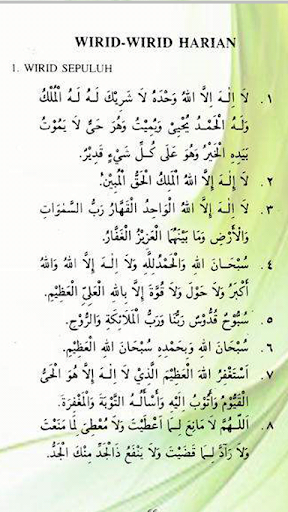 WIRID-WIRID HARIAN
1. WIRID SEPULUH
١. لَا اِلٰهَ اِلَّا اللهُ وَحْدَهُ لَا شَرِيْكَ لَهُ لَهُ الْمُلْكُ
وَلَهُ الْحَمْدُ يُحْيِيْ وَيُمِيْتُ وَهُوَ حَىٌّ لَا يَمُوْتُ
بِيَدِهِ الْخَيْرُ وَهُوَ عَلَى كُلِّ شَيْءٍ قَدِيْرٌ.
٢. لَا اِلٰهَ اِلَّا اللهُ الْمَلِكُ الْحَقُّ الْمُبِيْنُ.
٣. لَا اِلٰهَ اِلَّا اللهُ الْوَاحِدُ الْقَهَّارُ رَبُّ السَّمٰوَاتِ
وَالْأَرْضِ وَمَا بَيْنَهُمَا الْعَزِيْزُ الْغَفَّارُ.
٤. سُبْحَانَ اللهِ وَالْحَمْدُ لِلّٰهِ وَلَا اِلٰهَ اِلَّا اللهُ وَاللهُ
أَكْبَرُ وَلَا حَوْلَ وَلَا قُوَّةَ اِلَّا بِاللهِ الْعَلِيِّ الْعَظِيْمِ.
٥. سُبُّوْحٌ قُدُّوْسٌ رَبُّنَا وَرَبُّ الْمَلَائِكَةِ وَالرُّوْحِ.
٦. سُبْحَانَ اللهِ وَبِحَمْدِهِ سُبْحَانَ اللهِ الْعَظِيْمِ.
٧. أَسْتَغْفِرُ اللهَ الْعَظِيْمَ الَّذِيْ لَا اِلٰهَ اِلَّا هُوَ الْحَيُّ
الْقَيُّوْمُ وَأَتُوْبُ اِلَيْهِ وَأَسْأَلُهُ التَّوْبَةَ وَالْمَغْفِرَةَ.
٨. اَللّٰهُمَّ لَا مَانِعَ لِمَا اَعْطَيْتَ وَلَا مُعْطِيَ لِمَا مَنَعْتَ
وَلَا رَآدَّ لِمَا قَضَيْتَ وَلَا يَنْفَعُ ذَا الْجَدِّ مِنْكَ الْجَدُّ.